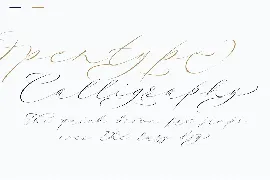 Opentype
Calligraphy
The quick brown fox jumps
over the lazy dogs